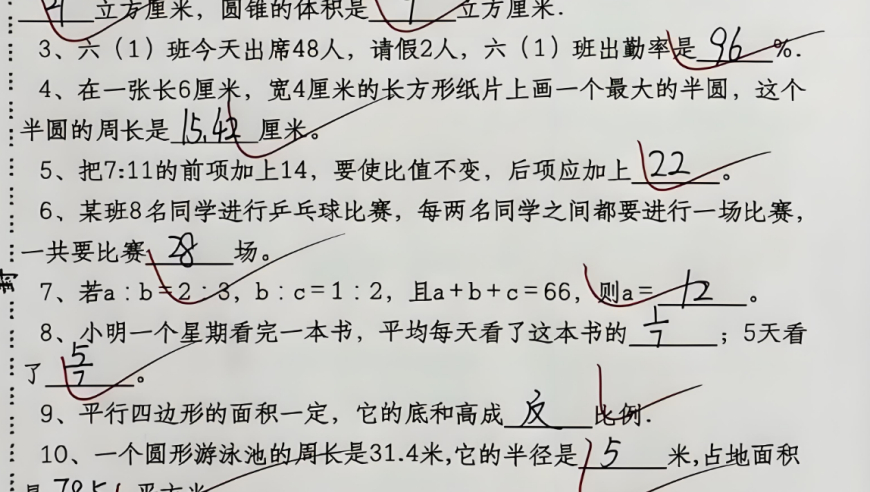 立方厘米，圆锥的体积是 立方厘米.
3、六（1）班今天出席48人，请假2人，六（1）班出勤率是96%.
4、在一张长6厘米，宽4厘米的长方形纸片上画一个最大的半圆，这个
半圆的周长是15.42厘米。
5、把7:11的前项加上14，要使比值不变，后项应加上22。
6、某班8名同学进行乒乓球比赛，每两名同学之间都要进行一场比赛，
一共要比赛28场。
7、若a：b=2：3，b：c=1：2，且a+b+c=66，则a=12。
8、小明一个星期看完一本书，平均每天看了这本书的1/7；5天看
了5/7。
9、平行四边形的面积一定，它的底和高成反比例.
10、一个圆形游泳池的周长是31.4米,它的半径是5米,占地面积
是78.5平方米